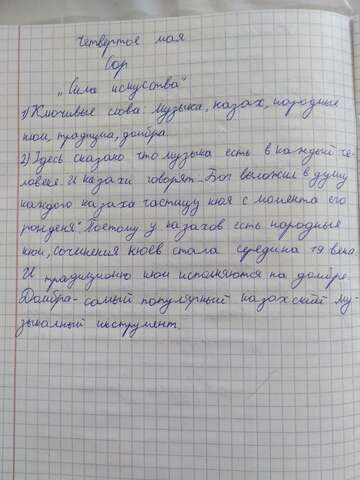 Четвертое мая
Сор
„Сила искусства"
1) Ключивые слова: музыка, казах, народные
кюи, традиция, домбра.
2) Здесь сказано что музыка есть в каждый че-
ловеке. И казахи говорят „Бог выложил в душу
каждого казаха частицу кюя с момента его
рождения". Поэтому у казахов есть народные
кюи, сочинения кюев стала середина 19 века.
И традиционо кюи исполняются на домбре.
Домбра - самый популярный казахский му-
зыкалный инструмент.